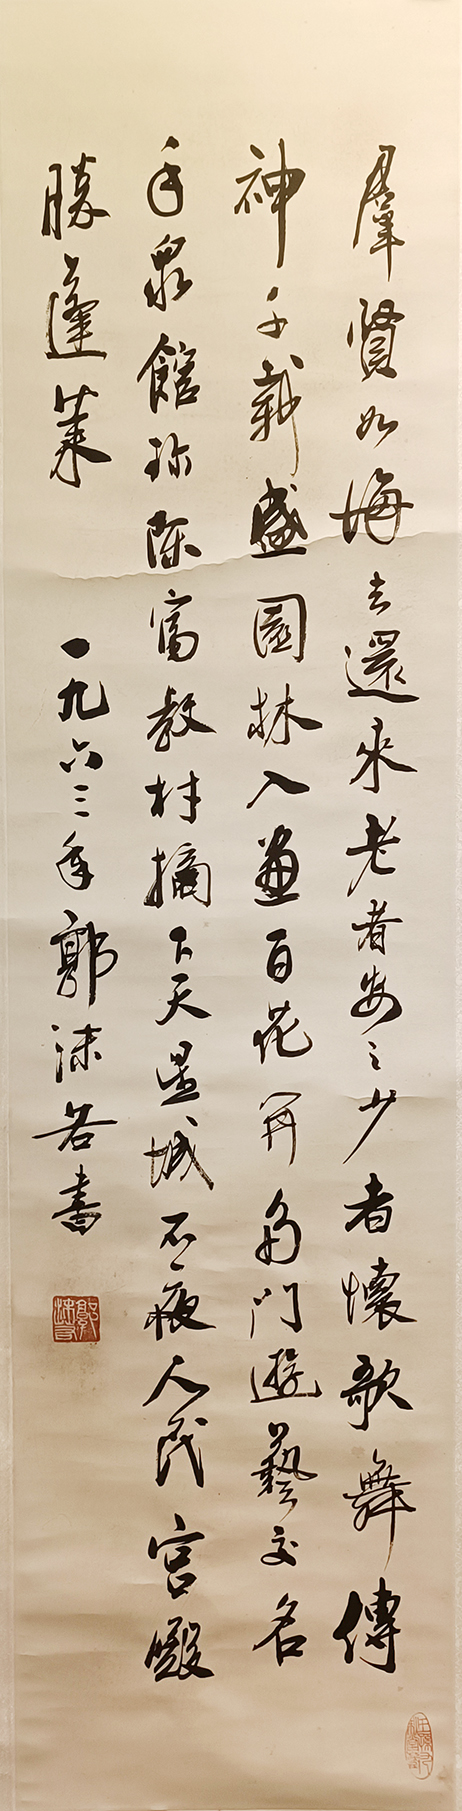 羣賢如海去還來老者安之少者懷歌舞傳
神千載盛園林入畫百花開多門遊藝交名
手眾館珍陳富教材摘下天星城不夜人民宮殿
勝蓬萊
一九六三年郭沫若書
郭沫若